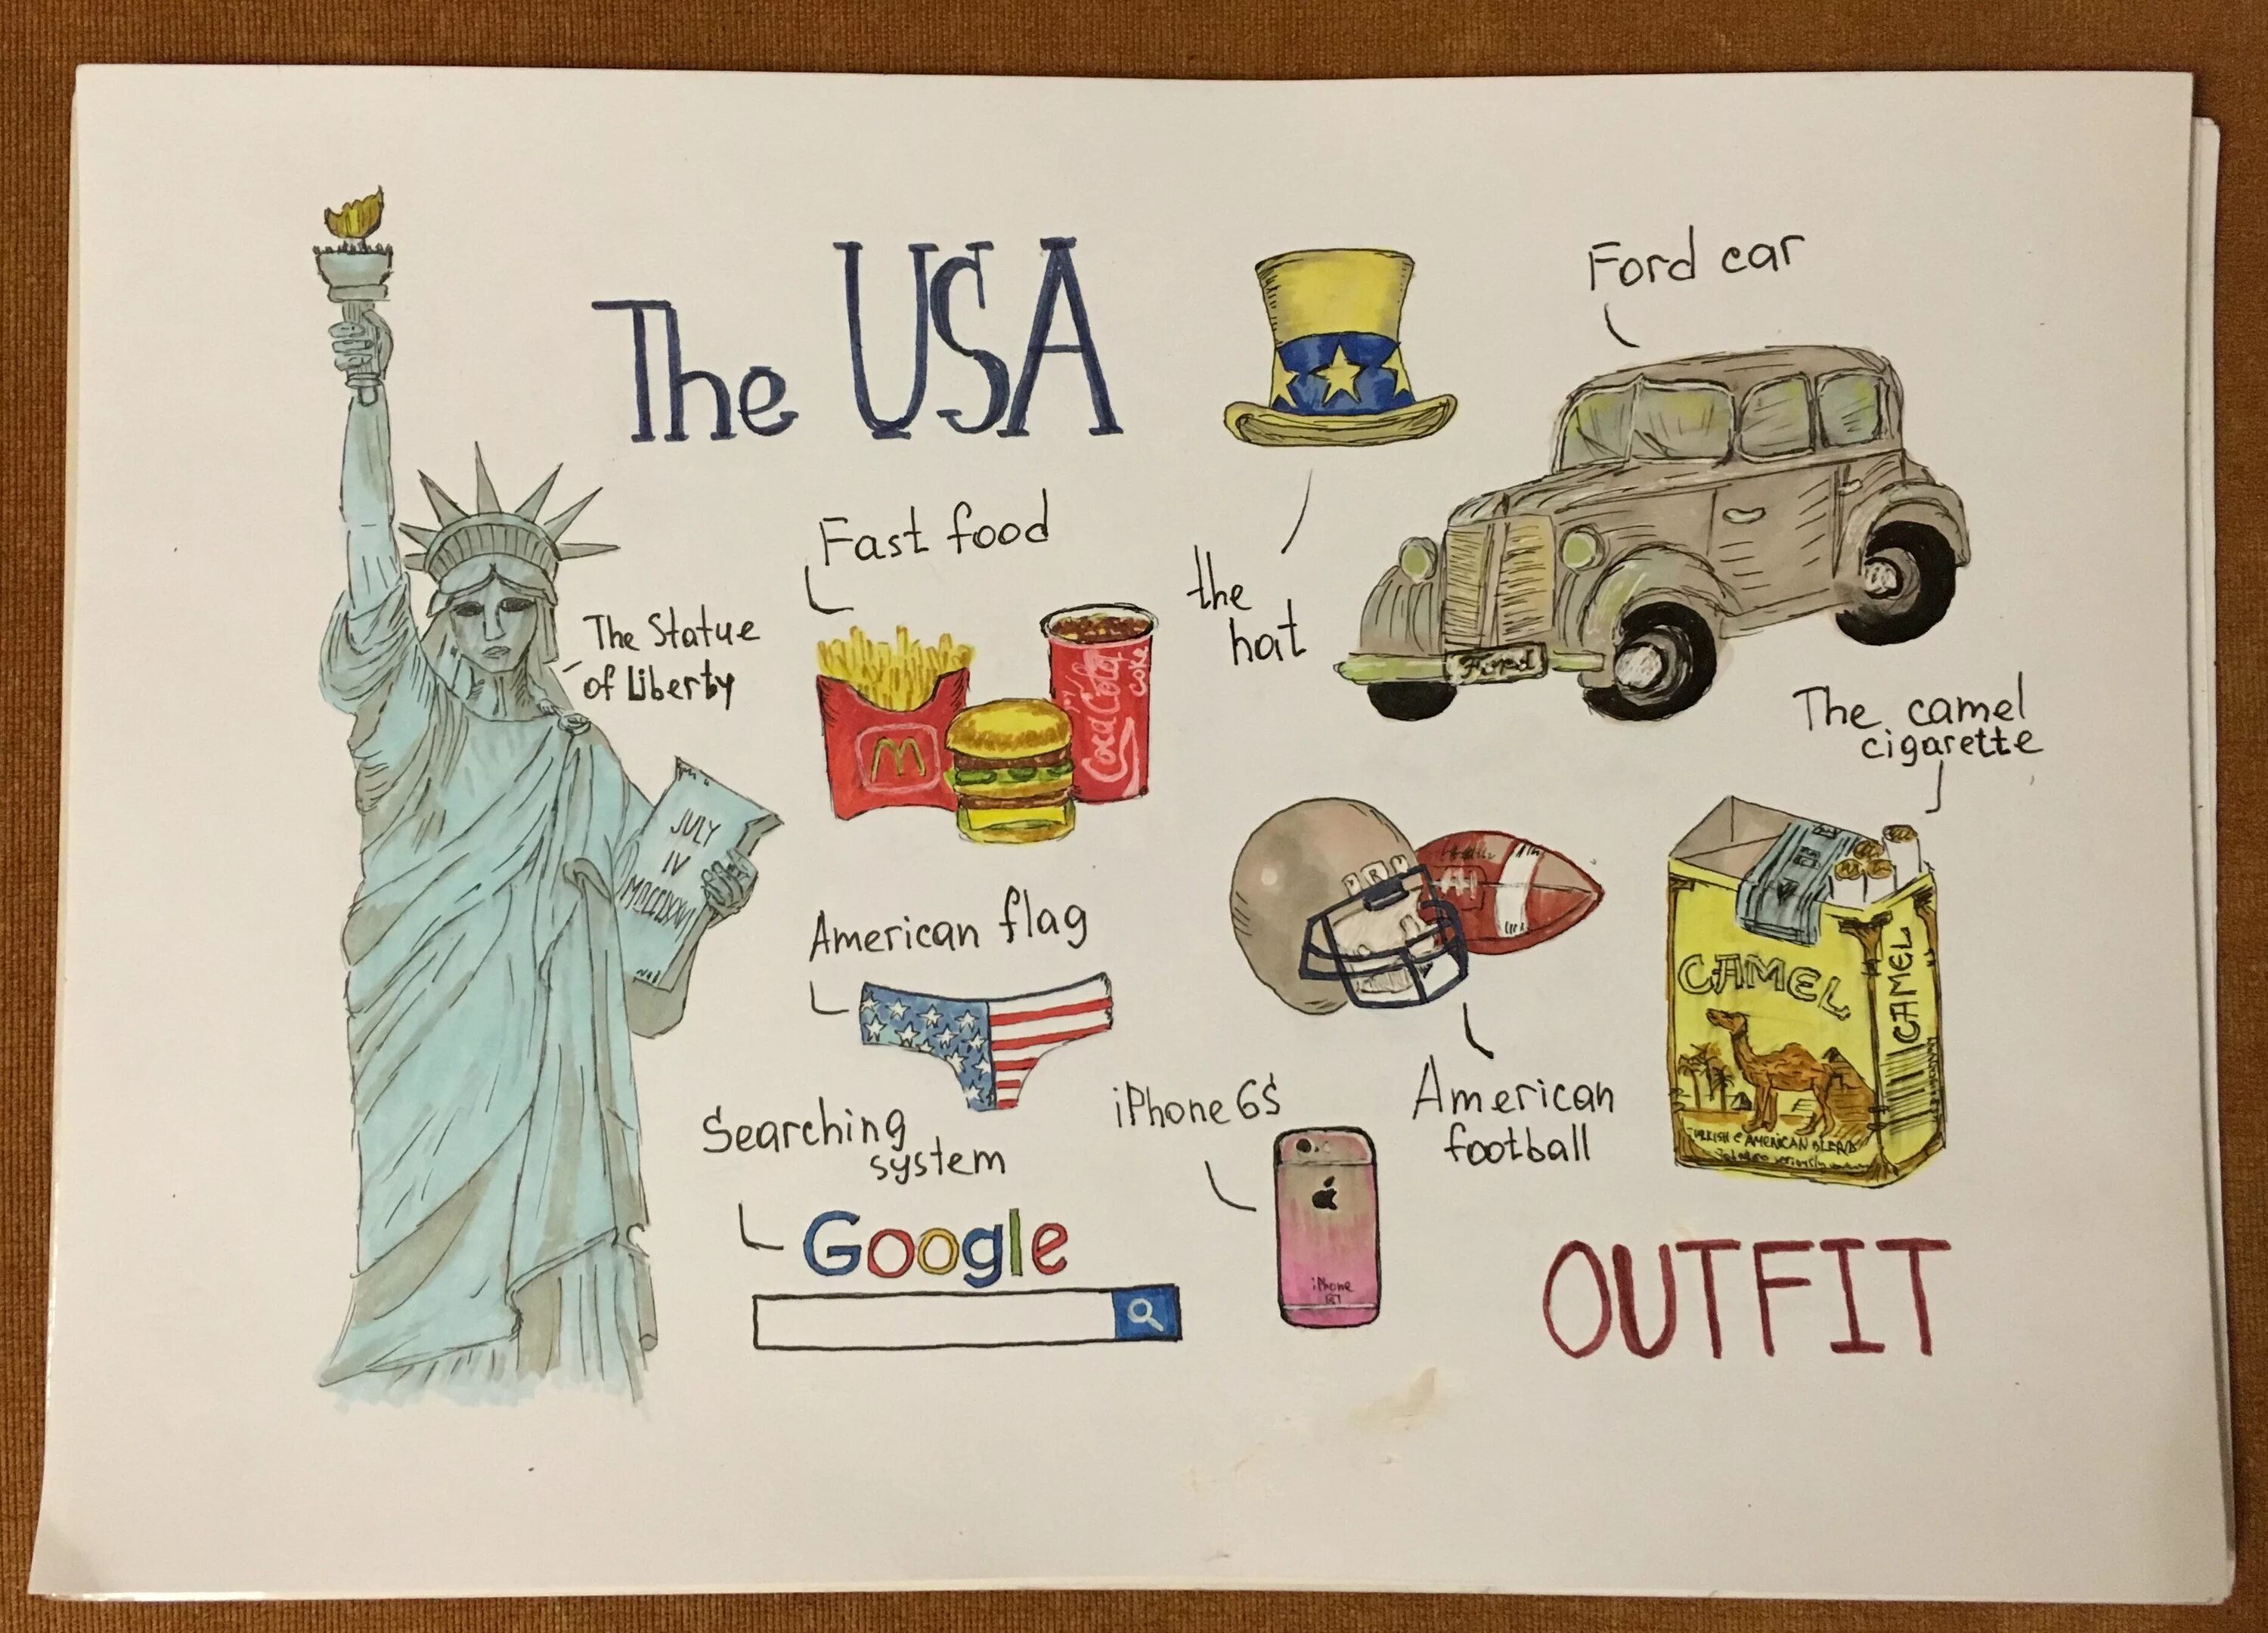 The USA
Ford car
Fast food
the
hat
The Statue
of Liberty
Coca Cola
coke
Ford
The camel
cigarette
JULY
IV
MDCCLXXVI
American flag
CAMEL
CAMEL
TURKISH & AMERICAN BLEND
Searching
system
iPhone 6S
American
football
Google
iPhone
OUTFIT